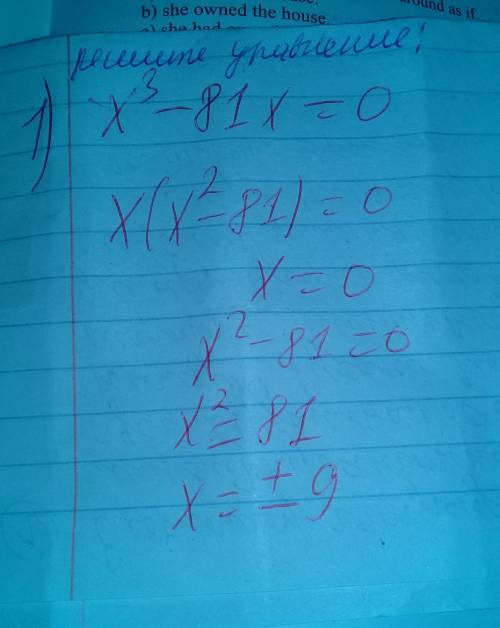 b) she owned the house.
around as if
решите уравнение:
1) x³ - 81x = 0
x(x² - 81) = 0
x = 0
x² - 81 = 0
x² = 81
x = ± 9